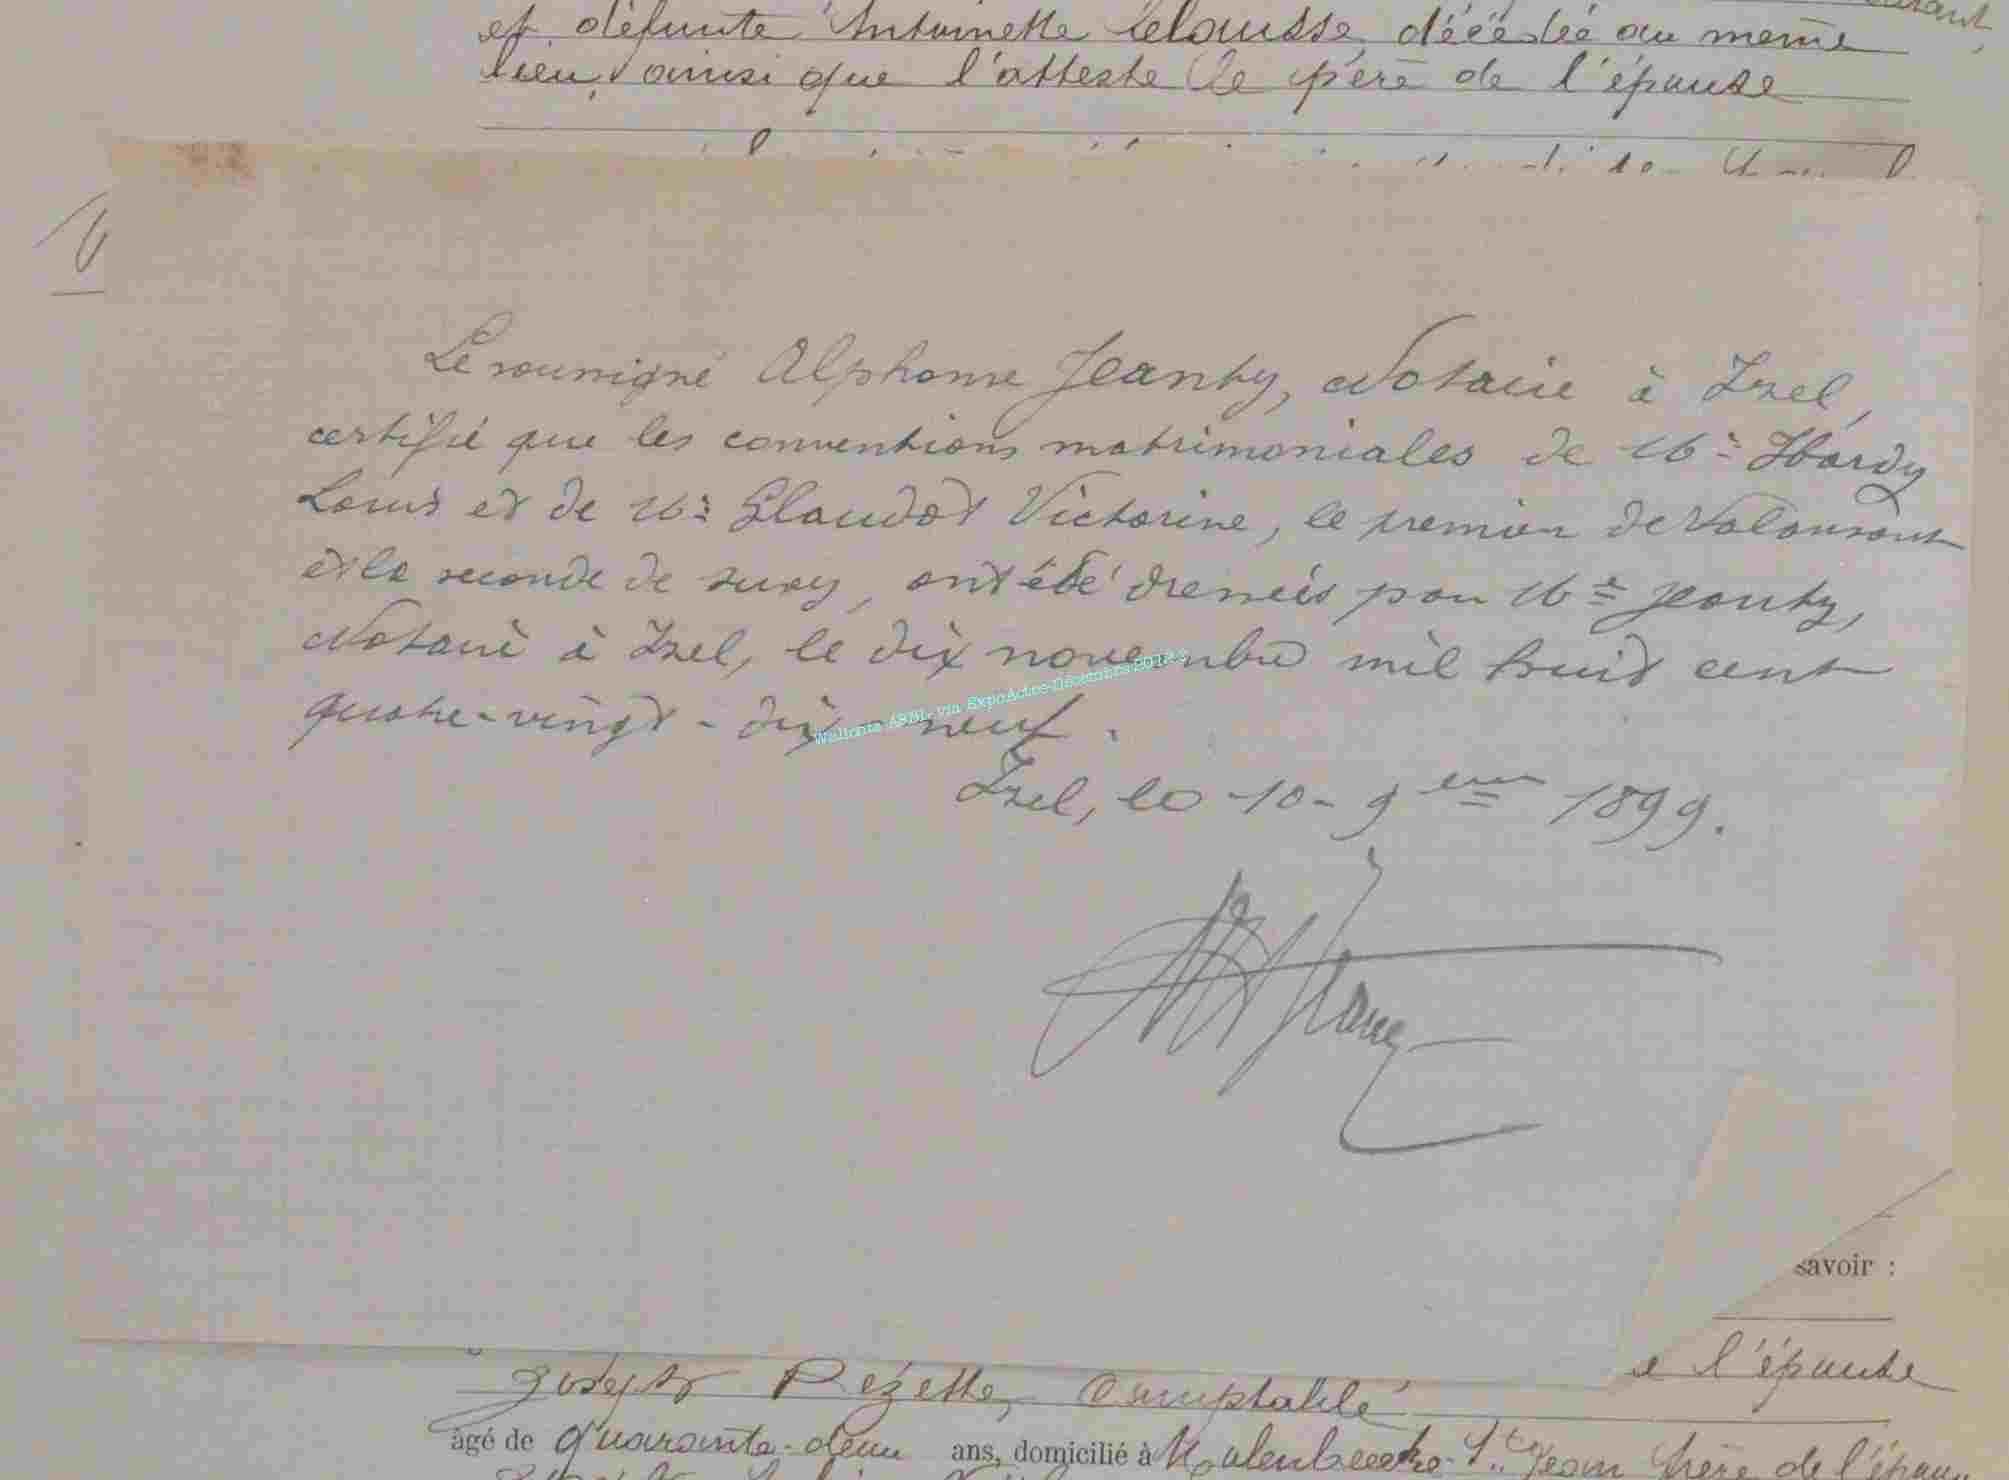 et défunte Antoinette décédée au même
lieu, ainsi que l'atteste le père de l'épouse
Le soussigné Alphonse Jeanty, Notaire à Izel,
certifie que les conventions matrimoniales de Mr Hardy
Louis et de Glaudot Victorine, le premier de Valansart
et la seconde de Suxy, ont été dressées par Me Jeanty,
Notaire à Izel, le dix novembre mil huit cent
quatre-vingt-dix-neuf.
Izel, le 10-9bre 1899.
Wallonia ASBL- via ExpoActes-Décembre2012
savoir :
l'épouse
Joseph Pezette, Comptable
âgé de quarante-deux ans, domicilié à Molenbeeck-St Jean frère de l'épou